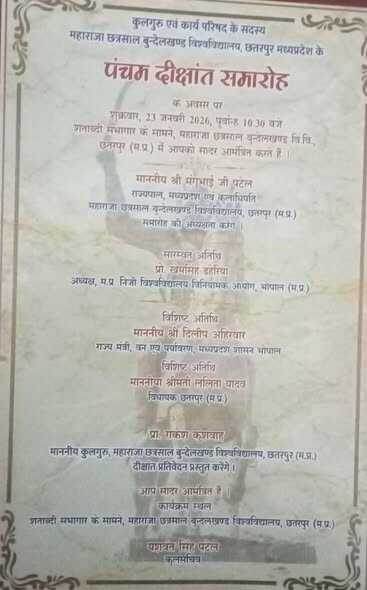 कुलगुरु एवं कार्य परिषद के सदस्य
महाराजा छत्रसाल बुन्देलखण्ड विश्वविद्यालय, छतरपुर मध्यप्रदेश के
पंचम दीक्षांत समारोह
के अवसर पर
शुक्रवार, 23 जनवरी 2026, पूर्वान्ह 10.30 बजे
शताब्दी सभागार के सामने, महाराजा छत्रसाल बुन्देलखण्ड वि.वि.,
छतरपुर (म.प्र.) में आपको सादर आमंत्रित करते हैं ।
माननीय श्री मंगुभाई जी पटेल
राज्यपाल, मध्यप्रदेश एवं कुलाधिपति
महाराजा छत्रसाल बुन्देलखण्ड विश्वविद्यालय, छतरपुर (म.प्र.)
समारोह की अध्यक्षता करेंगे ।
सारस्वत अतिथि
प्रो. खेमसिंह डहेरिया
अध्यक्ष, म.प्र. निजी विश्वविद्यालय विनियामक आयोग, भोपाल (म.प्र.)
विशिष्ट अतिथि
माननीय श्री दिलीप अहिरवार
राज्य मंत्री, वन एवं पर्यावरण, मध्यप्रदेश शासन भोपाल
विशिष्ट अतिथि
माननीया श्रीमती ललिता यादव
विधायक छतरपुर (म.प्र.)
प्रो. राकेश कुशवाह
माननीय कुलगुरु, महाराजा छत्रसाल बुन्देलखण्ड विश्वविद्यालय, छतरपुर (म.प्र.)
दीक्षांत प्रतिवेदन प्रस्तुत करेंगे ।
आप सादर आमंत्रित हैं ।
कार्यक्रम स्थल
शताब्दी सभागार के सामने, महाराजा छत्रसाल बुन्देलखण्ड विश्वविद्यालय, छतरपुर (म.प्र.)
यशवंत सिंह पटेल
कुलसचिव